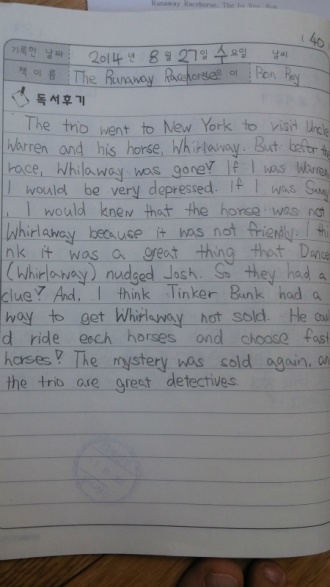 Runaway Racehorse, The by Ron Roy
: 40
기록한 날짜 2014 년 8 월 27 일 수 요일 날씨
책 이름 The Runaway Racehorse 이 Ron Roy
독서후기
The trio went to New York to visit Uncle
Warren and his horse, Whirlaway. But before the
race, Whilaway was gone? If I was Warren
I would be very depressed. If I was Sung
, I would knew that the horse was not
Whirlaway because it was not friendly. I thi
nk it was a great thing that Dance
(Whirlaway) nudged Josh. So they had a
clue? And, I think Tinker Bunk had a
way to get Whirlaway not sold. He coul
d ride each horses and choose fast
horses? The mystery was sold again, an
the trio are great detectives